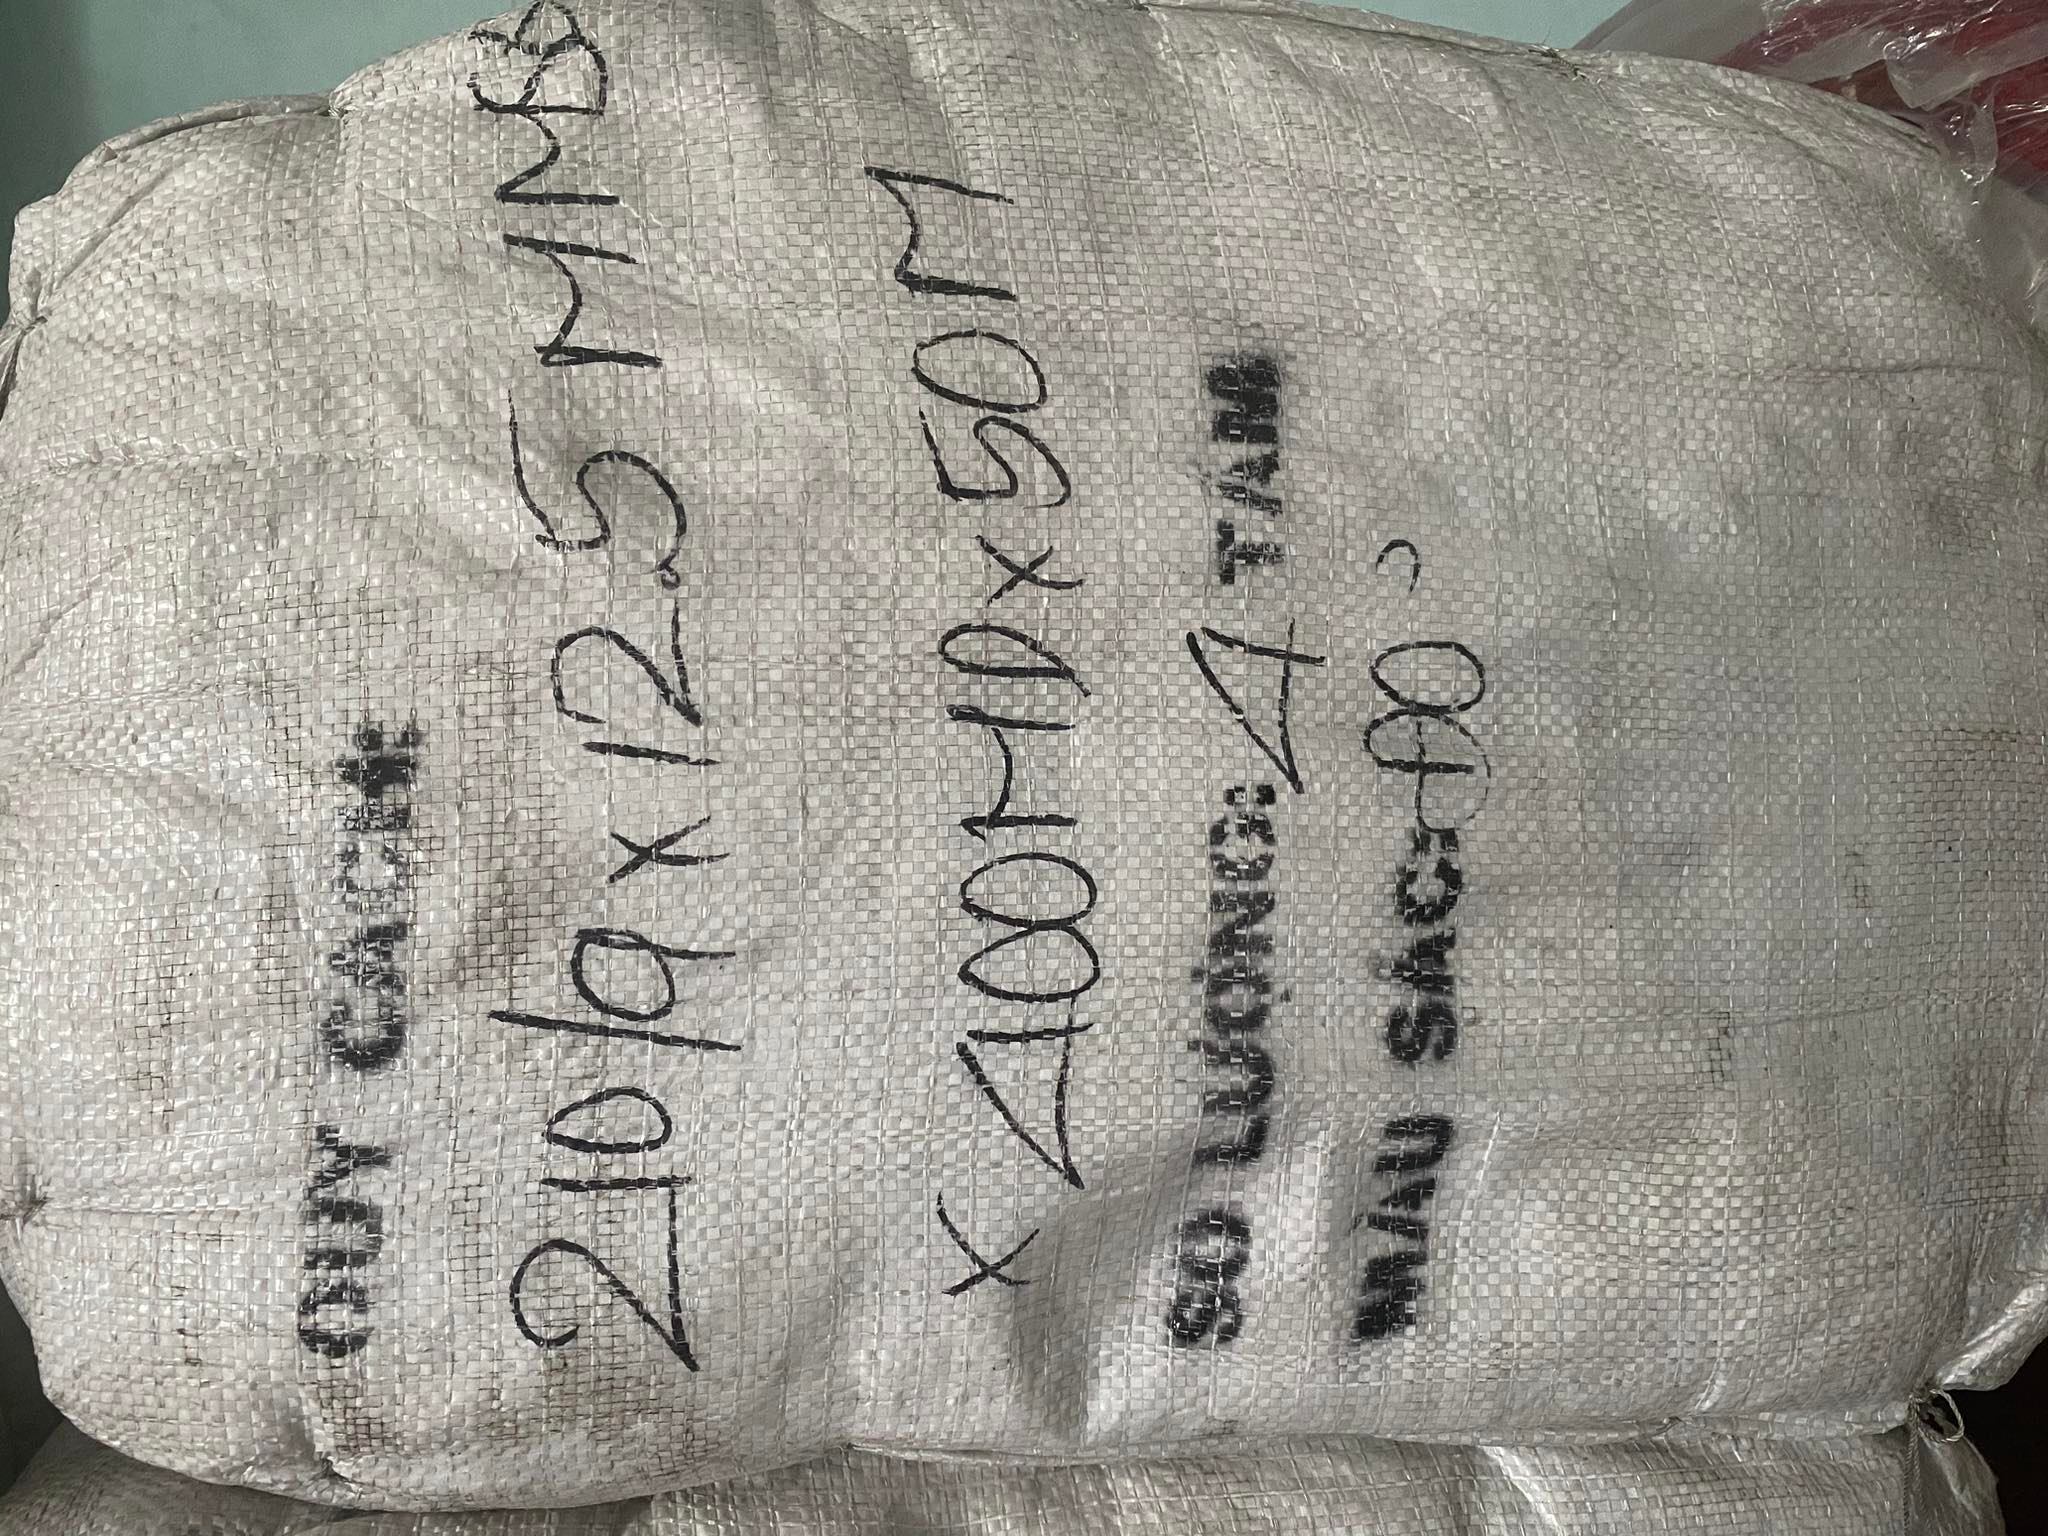 QUY CÁCH:
210/9 x 12.5 MM
x 400MD x 50M
SỐ LƯỢNG: 4 TẤM
MÀU SẮC: